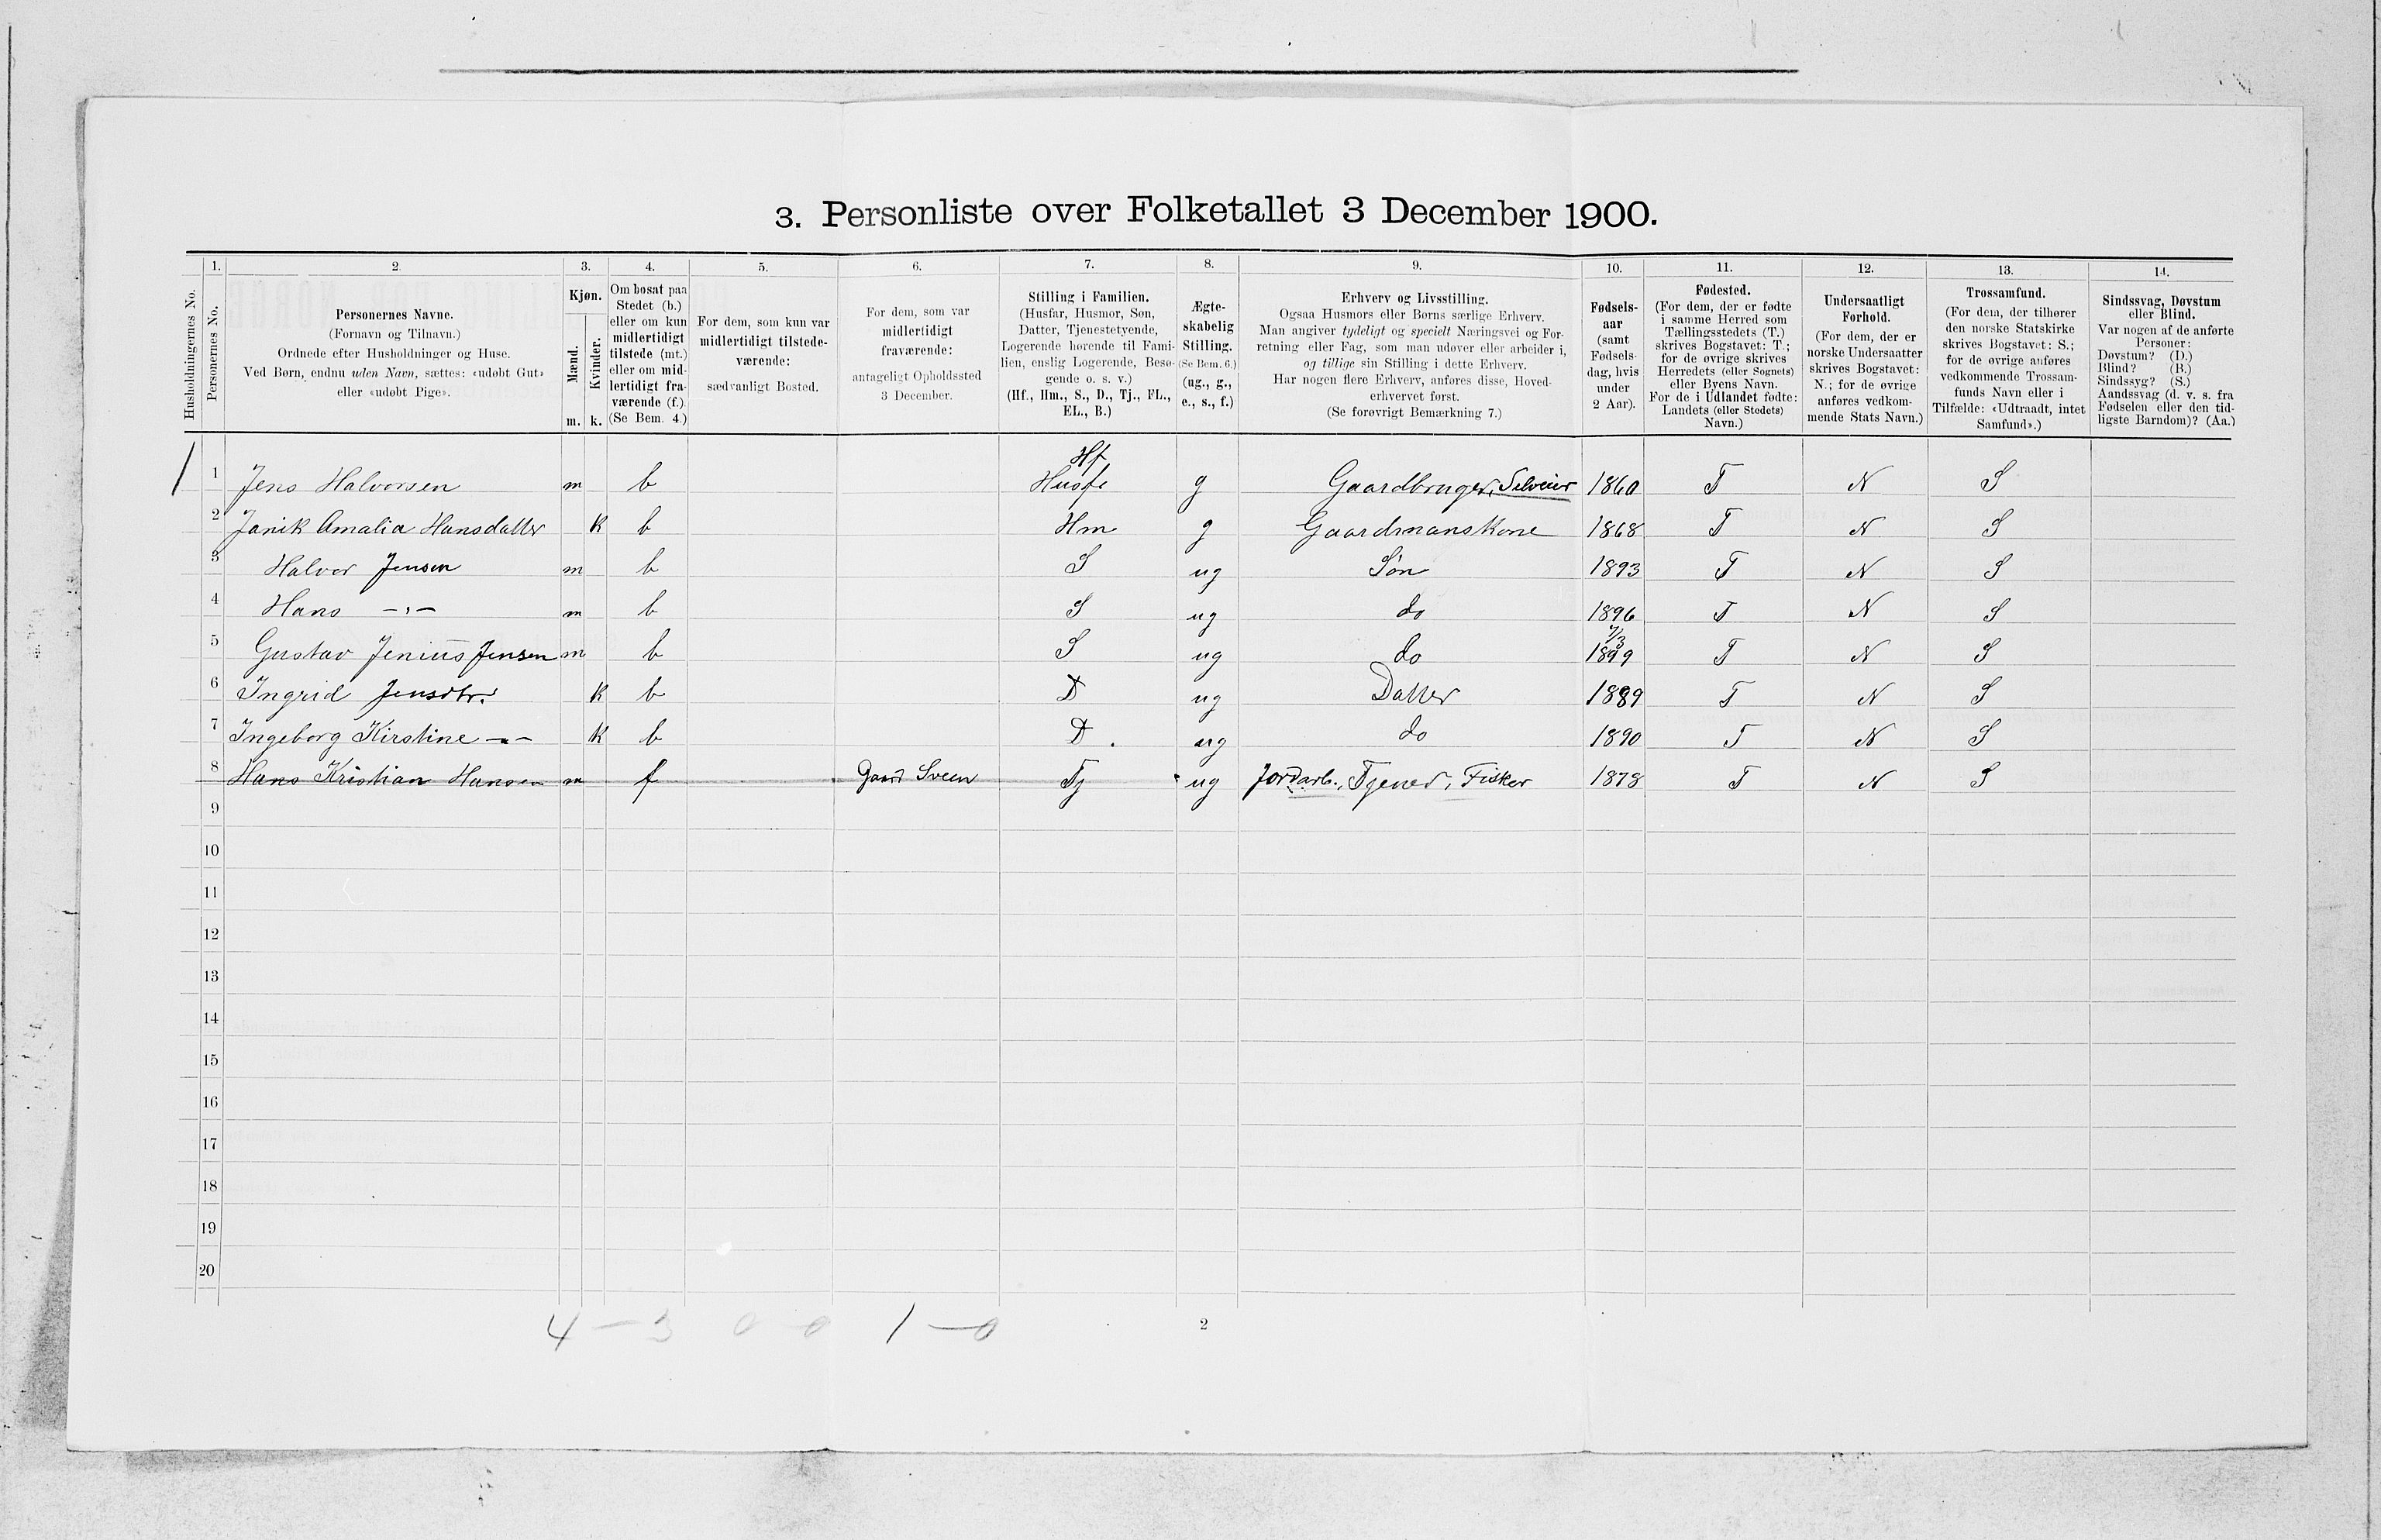 3. Personliste over Folketallet 3 December 1900.
1. 2. 3. 4. 5. 6. 7. 8. 9. 10. 11. 12. 13. 14.
Husholdningernes No.
Personernes No.
Personernes Navne.
(Fornavn og Tilnavn.)
Ordnede efter Husholdninger og Huse.
Ved Børn, endnu uden Navn, sættes: «udøbt Gut»
eller «udøbt Pige».
Kjøn.
Mænd.
Kvinder.
m. k.
Om bosat paa
Stedet (b.)
eller om kun
midlertidigt
tilstede (mt.)
eller om mid-
lertidigt fra-
værende (f.)
(Se Bem. 4.)
For dem, som kun var
midlertidigt tilstede-
værende:
sædvanligt Bosted.
For dem, som var
midlertidigt
fraværende:
antageligt Opholdssted
3 December.
Stilling i Familien.
(Husfar, Husmor, Søn,
Datter, Tjenestetyende,
Logerende hørende til Fami-
lien, enslig Logerende, Besø-
gende o. s. v.)
(Hf., Hm., S., D., Tj., FL.,
EL., B.)
Ægte-
skabelig
Stilling.
(Se Bem. 6.)
(ug., g.,
e., s., f.)
Erhverv og Livsstilling.
Ogsaa Husmors eller Børns særlige Erhverv.
Man angiver tydeligt og specielt Næringsvei og For-
retning eller Fag, som man udøver eller arbeider i,
og tillige sin Stilling i dette Erhverv.
Har nogen flere Erhverv, anføres disse, Hoved-
erhvervet først.
(Se forøvrigt Bemærkning 7.)
Fødsels-
aar
(samt
Fødsels-
dag, hvis
under
2 Aar).
Fødested.
(For dem, der er fødte
i samme Herred som
Tællingsstedets (T.)
skrives Bogstavet: T.;
for de øvrige skrives
Herredets (eller Sognets)
eller Byens Navn.
For de i Udlandet fødte:
Landets (eller Stedets)
Navn.)
Undersaatligt
Forhold.
(For dem, der er
norske Undersaatter
skrives Bogstavet:
N.; for de øvrige
anføres vedkom-
mende Stats Navn.)
Trossamfund.
(For dem, der tilhører
den norske Statskirke
skrives Bogstavet: S.;
for de øvrige anføres
vedkommende Trossam-
funds Navn eller i
Tilfælde: «Udtraadt, intet
Samfund».)
Sindssvag, Døvstum
eller Blind.
Var nogen af de anførte
Personer:
Døvstum? (D.)
Blind? (B.)
Sindssyg? (S.)
Aandssvag (d. v. s. fra
Fødselen eller den tid-
ligste Barndom)? (Aa.)
Hf
1 1 Jens Halvorsen m b Husfe g Gaardbruger, Selveier 1860 T N S
2 Janik Amalia Hansdatter k b Hm g Gaardmanskone 1868 T N S
3 Halvor Jensen m b S ug Søn 1893 T N S
4 Hans -"- m b S ug do 1896 T N S
7/3
5 Gustav Jenius Jensen m b S ug do 1899 T N S
6 Ingrid Jensdtr. k b D ug Datter 1889 T N S
7 Ingeborg Kirstine -"- k b D. ug do 1890 T N S
8 Hans Kristian Hansen m f Gaard Sveen Tj ug Jordarb., Tjener, Fisker 1878 T N S
9
10
11
12
13
14
15
16
17
18
19
20
4 - 3 0 - 0 1 - 0
2